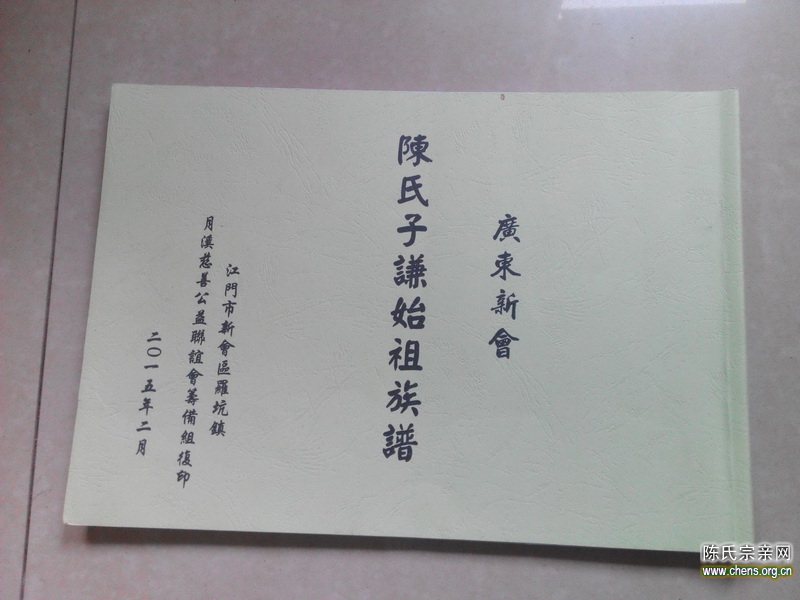 廣東新會
陳氏子謙始祖族譜
江門市新會區羅坑鎮
月溪慈善公益聯誼會籌備組復印
二〇一五年二月
陈氏宗亲网
www.chens.org.cn